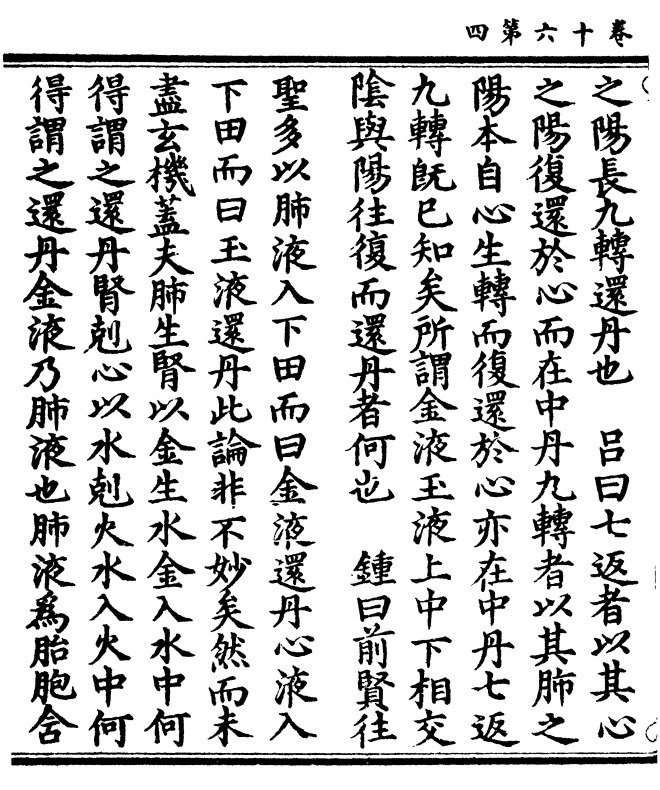 卷十六第四
之陽長九轉還丹也　呂曰七返者以其心
之陽復還於心而在中丹九轉者以其肺之
陽本自心生轉而復還於心亦在中丹七返
九轉既已知矣所謂金液玉液上中下相交
陰與陽往復而還丹者何也　鍾曰前賢往
聖多以肺液入下田而曰金液還丹心液入
下田而曰玉液還丹此論非不妙矣然而未
盡玄機蓋夫肺生腎以金生水金入水中何
得謂之還丹腎剋心以水剋火水入火中何
得謂之還丹金液乃肺液也肺液為胎胞含